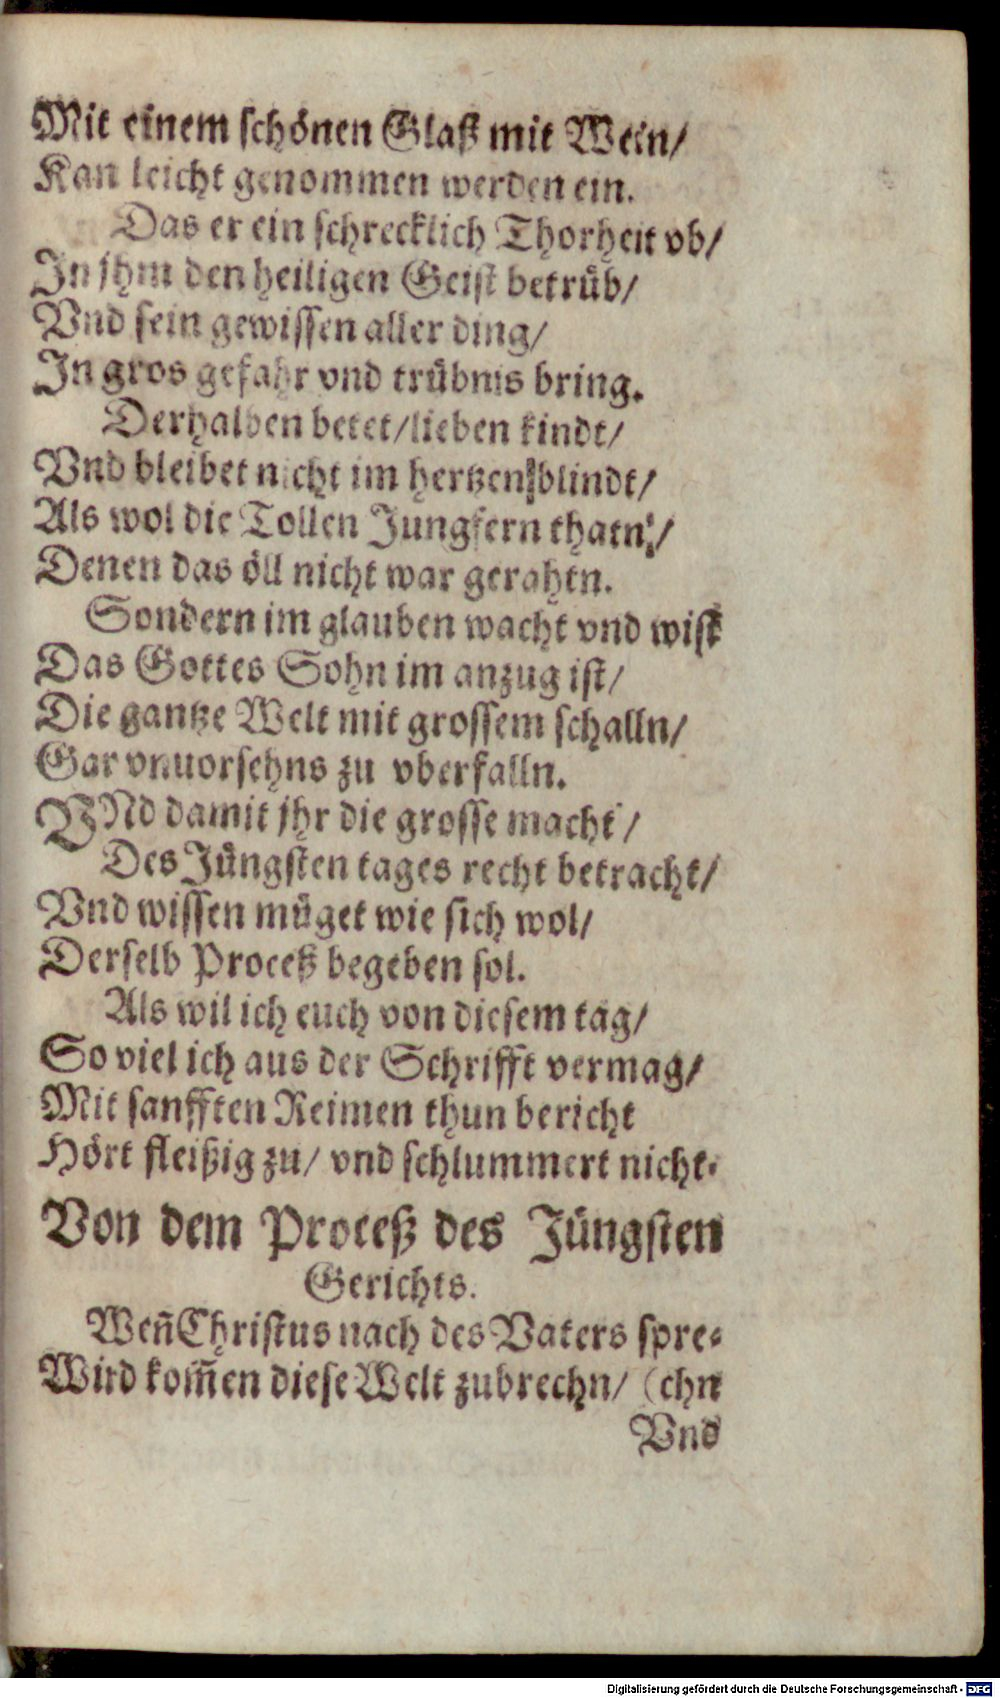 Mit einem schönen Glaß mit Wein/
Kan leicht genommen werden ein.
Das er ein schrecklich Thorheit vb/
In jhm den heiligen Geist betrüb/
Vnd sein gewissen aller ding/
In gros gefahr vnd trübnis bring.
Derhalben betet/lieben kindt/
Vnd bleibet nicht im hertzen blindt/
Als wol die Tollen Jungfern thatn/
Denen das öll nicht war gerahtn.
Sondern im glauben wacht vnd wist
Das Gottes Sohn im anzug ist/
Die gantze Welt mit grossem schalln/
Gar vnuorsehns zu vberfalln.
VNd damit jhr die grosse macht/
Des Jüngsten tages recht betracht/
Vnd wissen müget wie sich wol/
Derselb Proceß begeben sol.
Als wil ich euch von diesem tag/
So viel ich aus der Schrifft vermag/
Mit sanfften Reimen thun bericht
Hört fleißig zu/ vnd schlummert nicht.
Von dem Proceß des Jüngsten
Gerichts.
Weñ Christus nach des Vaters spre-
Wird kom̃en diese Welt zubrechn/ (chn
Vnd
Digitalisierung gefördert durch die Deutsche Forschungsgemeinschaft - DFG